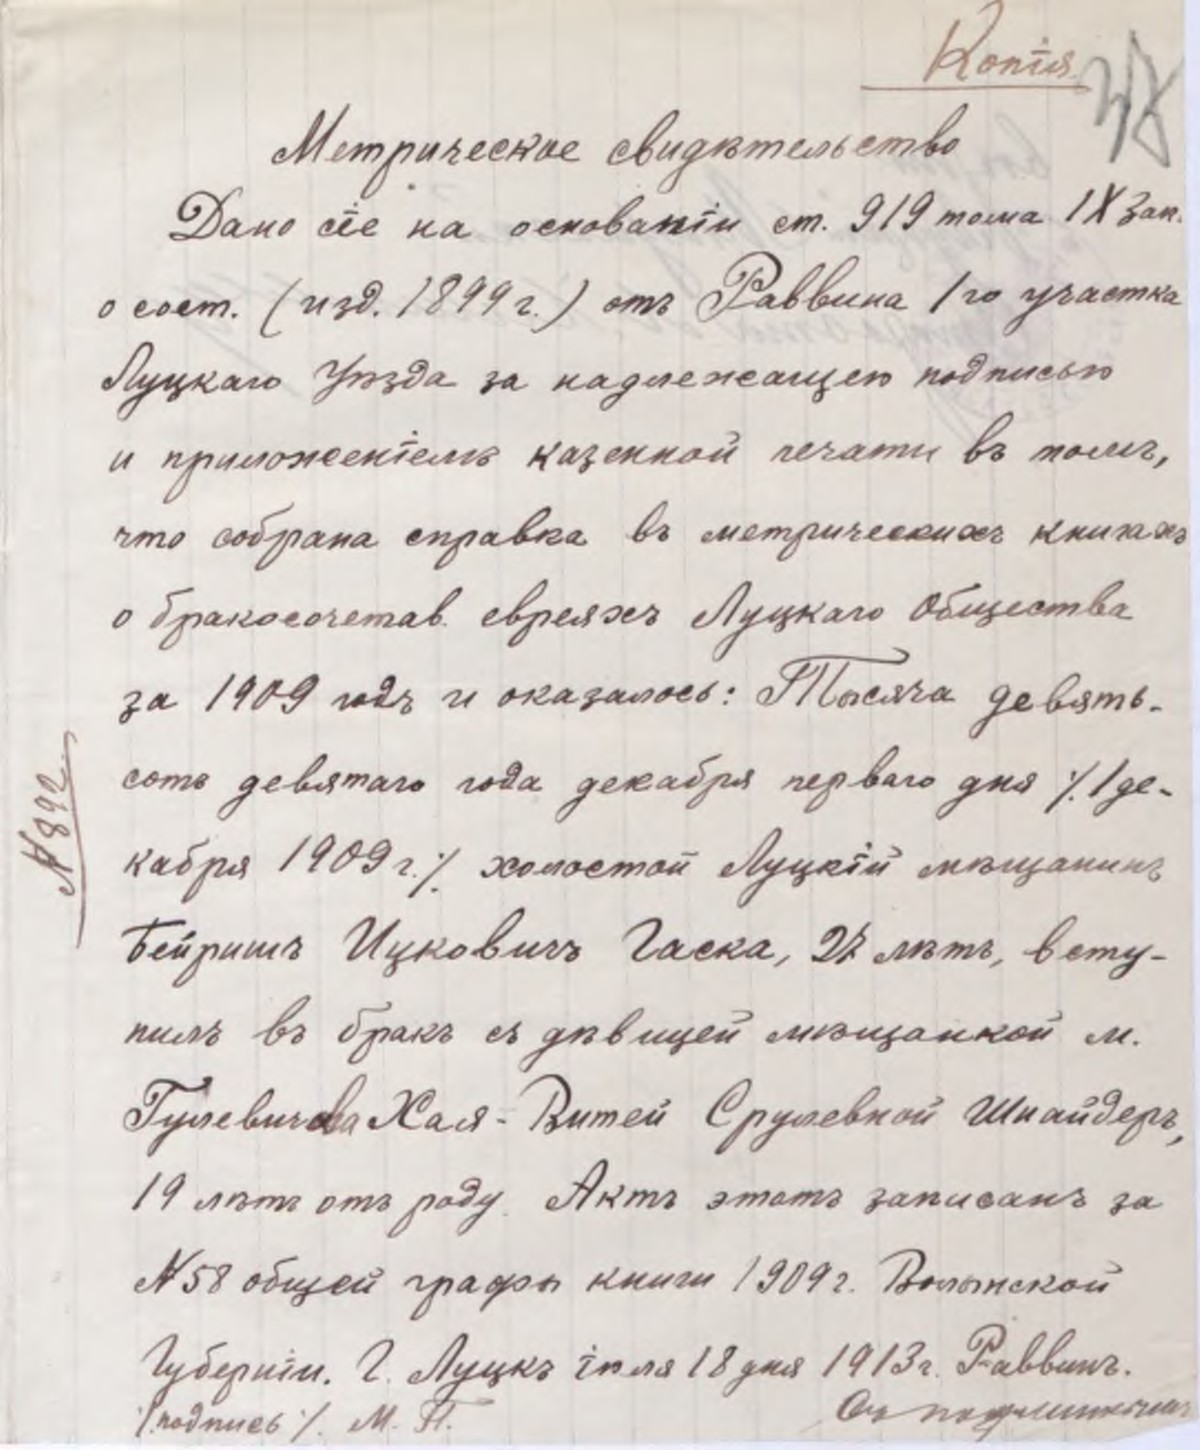 Копія
Метрическое свидѣтельство
Дано сіе на основаніи ст. 919 тома IX Зак.
о сост. (изд. 1899 г.) отъ Раввина 1го участка
Луцкаго Уѣзда за надлежащею подписью
и приложеніемъ казенной печати въ томъ,
что собрана справка въ метрическихъ книгахъ
о бракосочетав. евреяхъ Луцкаго Общества
за 1909 годъ и оказалось: Тысяча девять-
сотъ девятаго года декабря перваго дня ./. 1 де-
кабря 1909 г. ./. холостой Луцкій мѣщанинъ
№ 892
Бейришъ Ицковичъ Гаска, 27 лѣтъ, всту-
пилъ въ бракъ съ дѣвицей мѣщанкой м.
Гулевичова Хая-Витей Срулевной Шнайдеръ,
19 лѣтъ отъ роду. Актъ этотъ записанъ за
№58 общей графы книги 1909 г. Волынской
Губерніи. Г. Луцкъ іюля 18 дня 1913 г. Раввинъ.
./. подпись ./. М. П.
Съ подлиннымъ